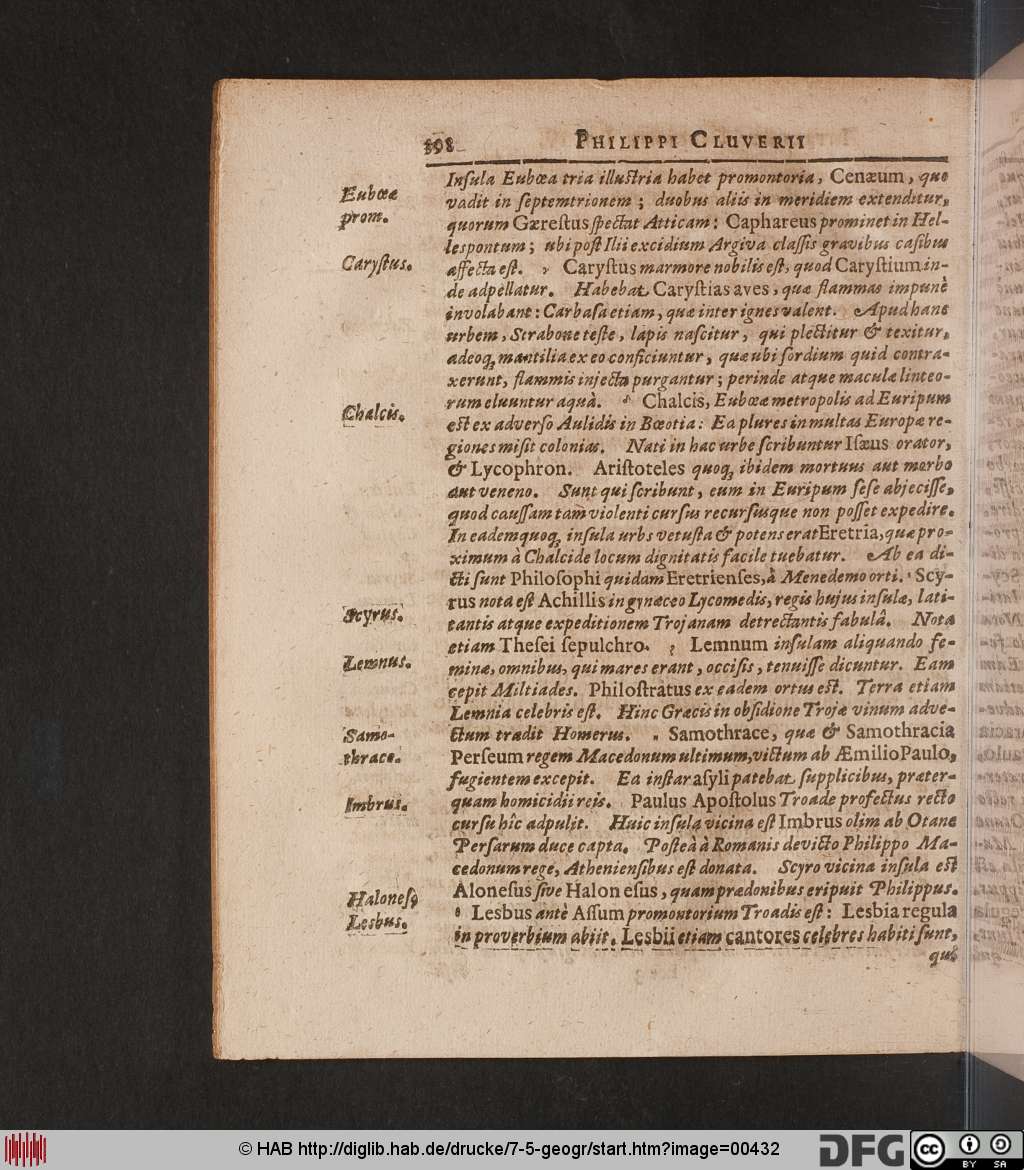 398 PHILIPPI CLUVERII
Eubœæ
prom.
Inſula Eubœa tria illuſtria habet promontoria, Cenæum, quo
vadit in ſeptemtrionem; duobus aliis in meridiem extenditur,
quorum Gæreſtus ſpectat Atticam: Caphareus prominet in Hel-
leſpontum; ubi poſt Ilii excidium Argiva claſſis gravibus caſibus
Caryſtus.
affecta eſt. Caryſtus marmore nobilis eſt, quod Caryſtium in-
de adpellatur. Habebat Caryſtias aves, quæ flammas impunè
involabant: Carbaſa etiam, quæ inter ignes valent. Apud hanc
urbem, Strabone teſte, lapis naſcitur, qui plectitur & texitur,
adeoq; mantilia ex eo conficiuntur, quæ ubi ſordium quid contra-
xerunt, flammis injecta purgantur; perinde atque maculæ linteo-
Chalcis.
rum eluuntur aquà. Chalcis, Eubœæ metropolis ad Euripum
eſt ex adverſo Aulidis in Bœotia: Ea plures in multas Europæ re-
giones miſit colonias. Nati in hac urbe ſcribuntur Iſæus orator,
& Lycophron. Ariſtoteles quoq; ibidem mortuus aut morbo
aut veneno. Sunt qui ſcribunt, eum in Euripum ſeſe abjeciſſe,
quod cauſſam tam violenti curſus recurſusque non poſſet expedire.
In eadem quoq; inſula urbs vetuſta & potens erat Eretria, quæ pro-
ximum à Chalcide locum dignitatis facile tuebatur. Ab ea di-
cti ſunt Philoſophi quidam Eretrienſes, à Menedemo orti. Scy-
Scyrus.
rus nota eſt Achillis in gynæceo Lycomedis, regis hujus inſulæ, lati-
tantis atque expeditionem Trojanam detrectantis fabulâ. Nota
etiam Theſei ſepulchro. Lemnum inſulam aliquando fe-
Lemnus.
minæ, omnibus, qui mares erant, occiſis, tenuiſſe dicuntur. Eam
cepit Miltiades. Philoſtratus ex eadem ortus eſt. Terra etiam
Lemnia celebris eſt. Hinc Græcis in obſidione Trojæ vinum adve-
Samo-
thrace.
ctum tradit Homerus. Samothrace, quæ & Samothracia
Perſeum regem Macedonum ultimum, victum ab Æmilio Paulo,
fugientem excepit. Ea inſtar aſyli patebat ſupplicibus, præter-
Imbrus.
quam homicidii reis. Paulus Apoſtolus Troade profectus recto
curſu hîc adpulit. Huic inſula vicina eſt Imbrus olim ab Otane
Perſarum duce capta. Poſteà à Romanis devicto Philippo Ma-
cedonum rege, Athenienſibus eſt donata. Scyro vicina inſula eſt
Haloneſꝰ
Aloneſus ſive Halon eſus, quam prædonibus eripuit Philippus.
Lesbus.
Lesbus antè Aſſum promontorium Troadis eſt: Lesbia regula
in proverbium abiit. Lesbii etiam cantores celebres habiti ſunt,
quĕ
© HAB http://diglib.hab.de/drucke/7-5-geogr/start.htm?image=00432
DFG
cc BY SA